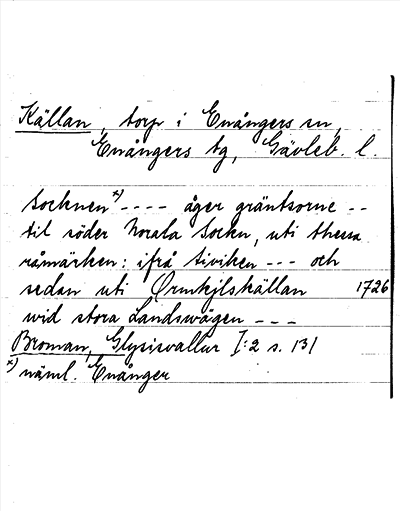 Källan, torp i Enångers sn,
Enångers tg, Gävleb. l.
Socknen x) ---- åger gräntsorne --
til söder Norala Sockn, uti thessa
råmärken: ifrå tiviken --- och
sedan uti Ormkjilskällan 1726
wid stora Landswägen ---
Broman, Glysisvallur I:2 s. 131
x) näml. Enånger